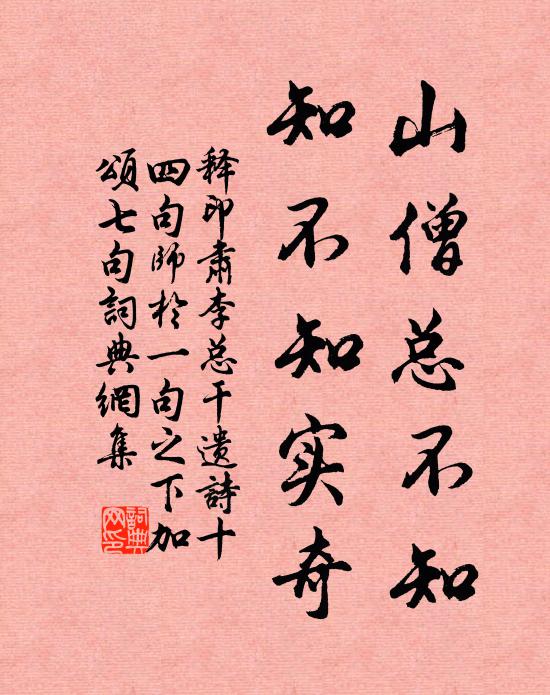 山僧总不知
知不知实奇
释印肃李总干遗詩十
四句師於一句之下加
頌七句詞典網集
詞典网印